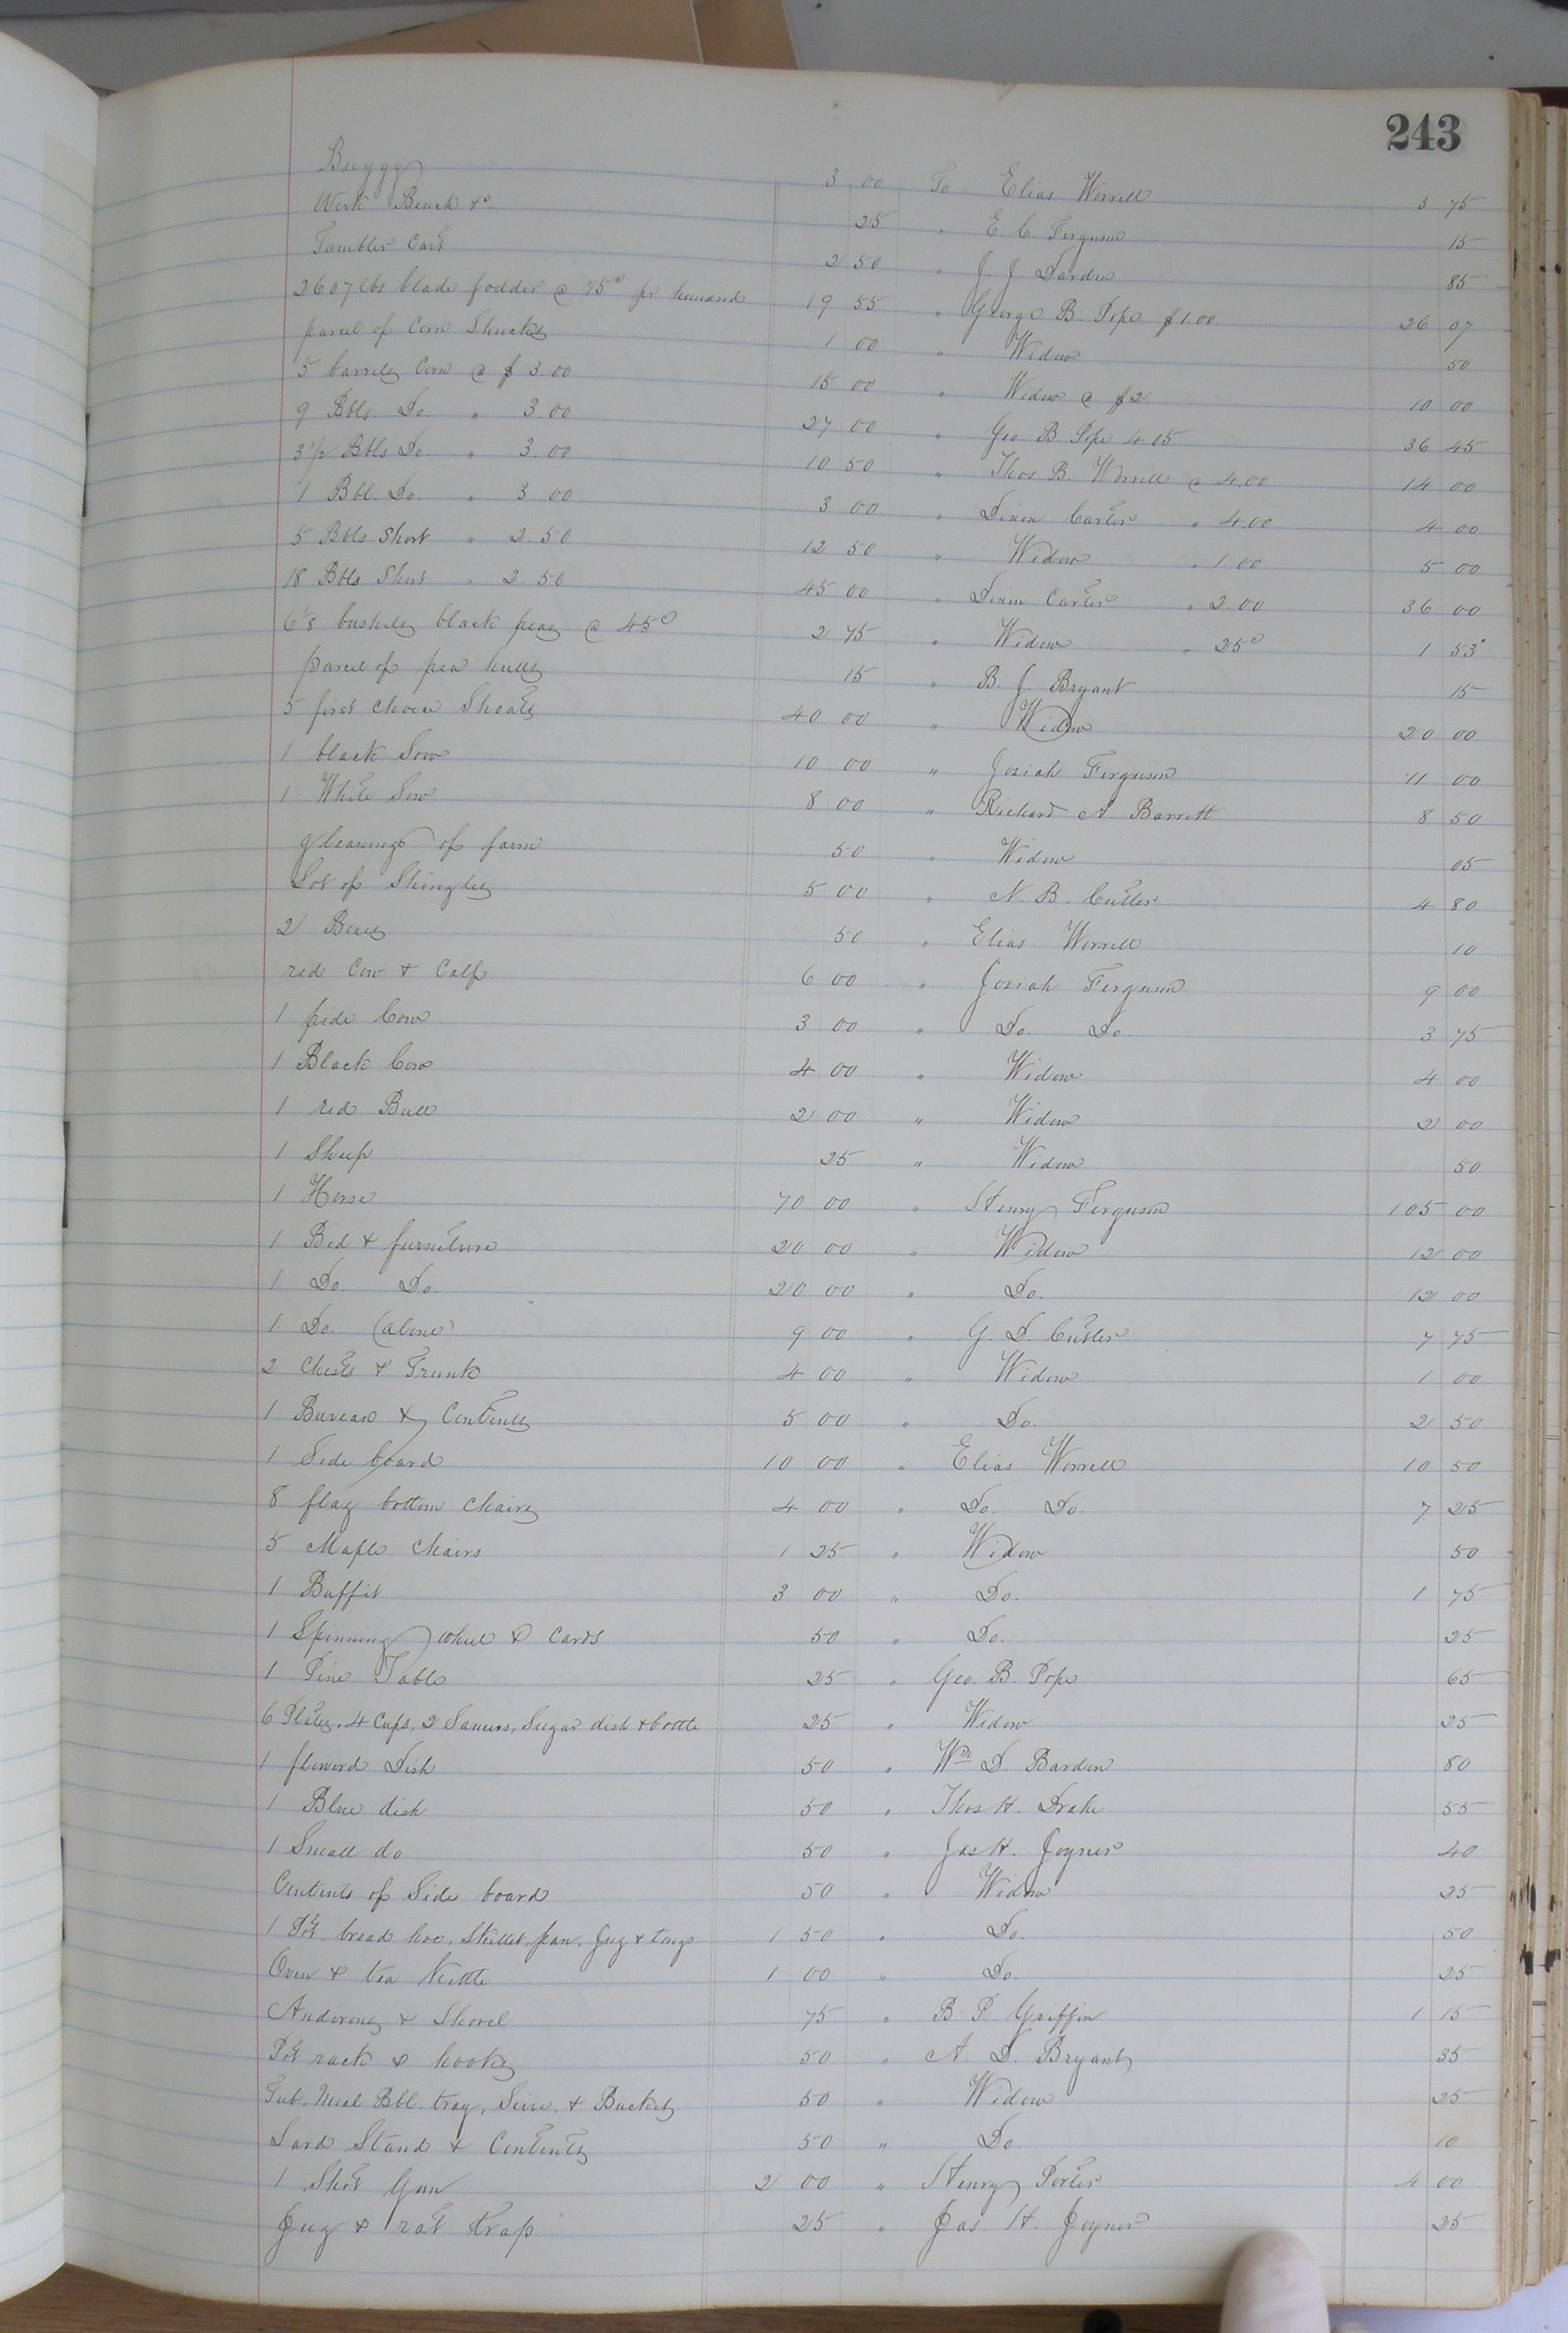 243
Buggy 3 00 To Elias Worrell 3 75
Work Bench &c 25 " E. C. Ferguson 15
Tumbler Cart 2 50 " J. J. Darden 85
2607 lbs blade fodder @ 75c pr hundred 19 55 " George B. Pope $1.00 26 07
parcel of Corn Shucks 1 00 " Widow 50
5 barrels Corn @ $3.00 15 00 " Widow @ $2. 10 00
9 Bbls. Do. " 3.00 27 00 " Geo. B. Pope 4 05 36 45
3 1/2 Bbls Do. " 3.00 10 50 " Thos B. Worrell @ 4.00 14 00
1 Bbl. Do. " 3 00 3 00 " Dixon Carter " 4.00 4 00
5 Bbls. Short " 2.50 12 50 " Widow " 1.00 5 00
18 Bbls Short " 2.50 45 00 " Dixon Carter " 2.00 36 00
6 1/8 bushels black peas @ 45c 2 75 " Widow " 25c 1 53
parcel of pea hulls 15 " B. J. Bryant 15
5 first choice Shoats 40 00 " Widow 20 00
1 black Sow 10 00 " Josiah Ferguson 11 00
1 White Sow 8 00 " Richard A. Barrett 8 50
gleanings of farm 50 " Widow 05
Lot of Shingles 5 00 " N. B. Cutler 4 80
2 Boxes 50 " Elias Worrell 10
red Cow & Calf 6 00 " Josiah Ferguson 9 00
1 pide Cow 3 00 " Do. Do. 3 75
1 Black Cow 4 00 " Widow 4 00
1 red Bull 2 00 " Widow 2 00
1 Sheep 25 " Widow 50
1 Horse 70 00 " Henry Ferguson 105 00
1 Bed & furniture 20 00 " Widow 12 00
1 Do. Do. 20 00 " Do. 12 00
1 Do. (alone) 9 00 " G. D. Cutler 7 75
2 Chests & Trunk 4 00 " Widow 1 00
1 Bureau & Contents 5 00 " Do. 2 50
1 Side board 10 00 " Elias Worrell 10 50
8 flag bottom chairs 4 00 " Do. Do. 7 25
5 Maple Chairs 1 25 " Widow 50
1 Buffit 3 00 " Do. 1 75
1 Spinning wheel & Cards 50 " Do. 25
1 Pine Table 25 " Geo. B. Pope 65
6 Plates, 4 Cups, 2 Saucers, Sugar dish & bottle 25 " Widow 25
1 flowerd Dish 50 " Wm D. Barden 80
1 Blue dish 50 " Thos H. Drake 55
1 Small do 50 " Jas H. Joyner 40
Contents of Side board 50 " Widow 25
1 Pot, bread hoe, Skillet, pan, Jug & tongs 1 50 " Do. 50
Oven & tea Kettle 1 00 " Do. 25
Andirons & Shovel 75 " B. P. Griffin 1 15
Pot rack & hooks 50 " A. D. Bryant 35
Tub, Meal Bbl. tray, Seive, & Buckets 50 " Widow 25
Lard Stand & Contents 50 " Do. 10
1 Shot Gun 2 00 " Henry Porter 4 00
Jug & rat trap 25 " Jas. H. Joyner 25